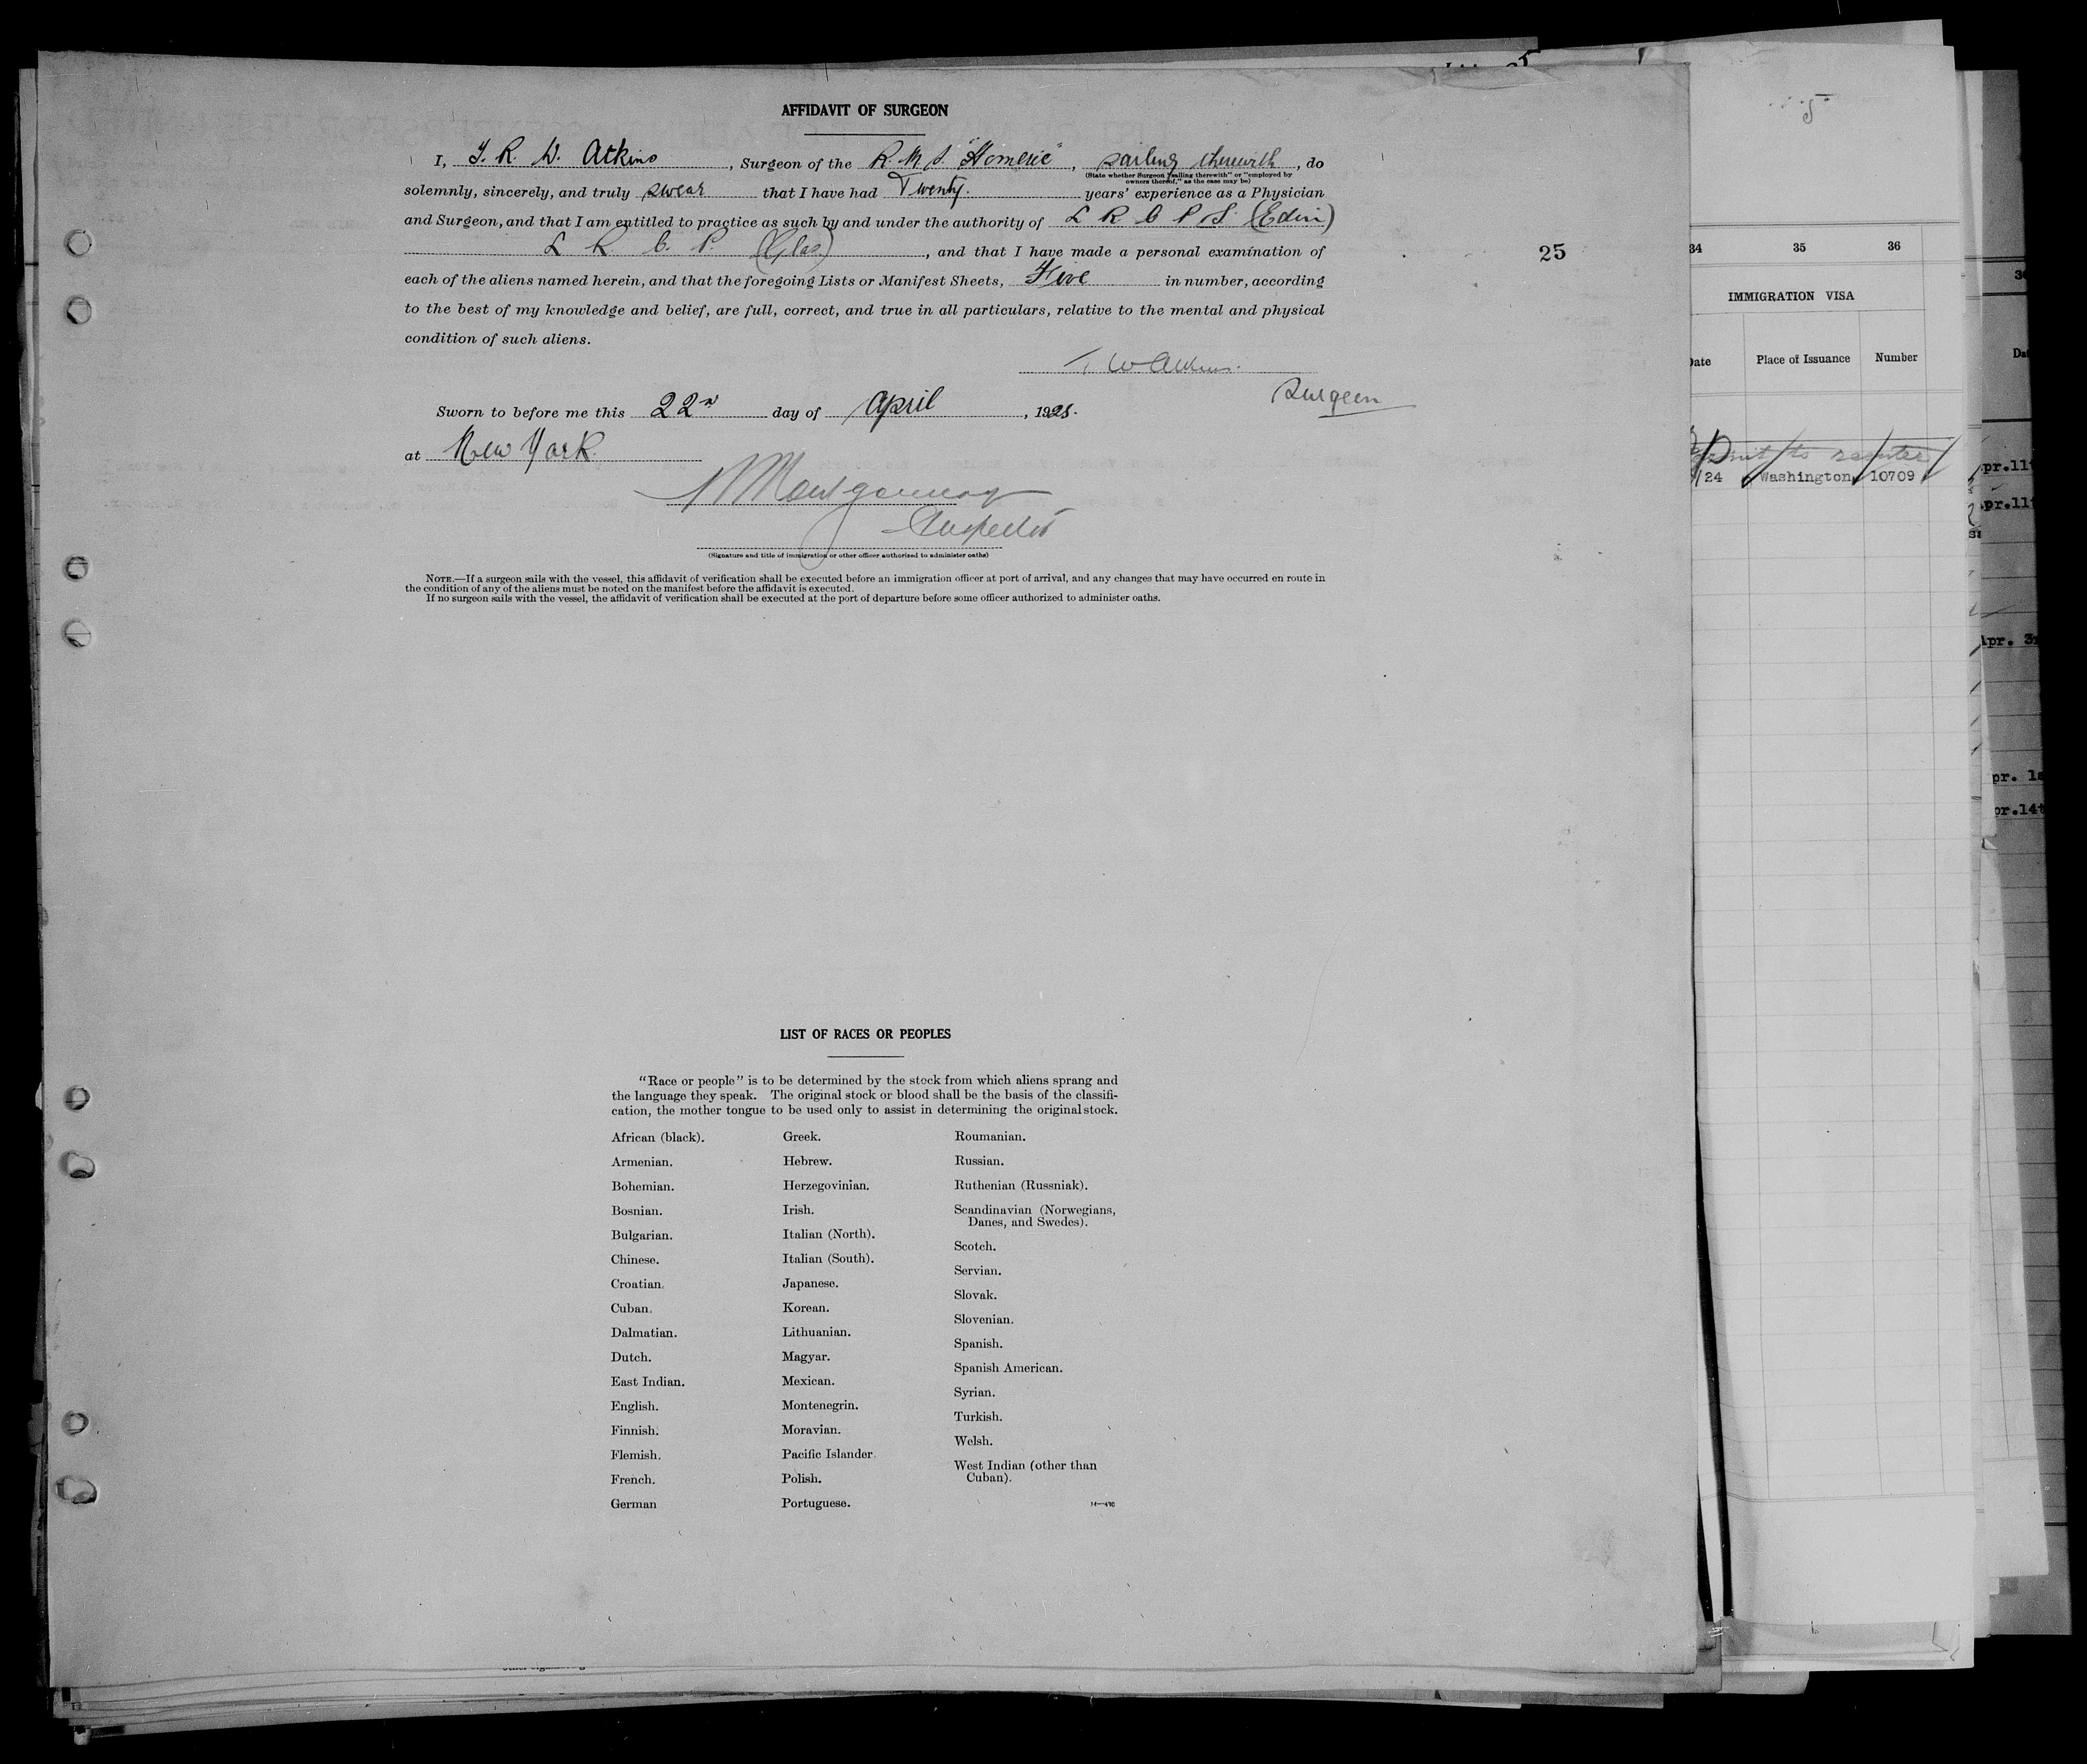 AFFIDAVIT OF SURGEON
I, T. R. W. Atkins, Surgeon of the R. M. S. "Homeric", sailing therewith, do
(State whether Surgeon "sailing therewith" or "employed by
owners thereof," as the case may be)
solemnly, sincerely, and truly swear that I have had Twenty. years' experience as a Physician
and Surgeon, and that I am entitled to practice as such by and under the authority of L R C P S. (Edin)
L R C. P. (Glas), and that I have made a personal examination of
each of the aliens named herein, and that the foregoing Lists or Manifest Sheets, Five in number, according
to the best of my knowledge and belief, are full, correct, and true in all particulars, relative to the mental and physical
condition of such aliens.
Atkins.
Surgeon
Sworn to before me this 22n day of April, 1925.
at New York.
Montgomery
Inspector
(Signature and title of immigration or other officer authorized to administer oaths)
NOTE.—If a surgeon sails with the vessel, this affidavit of verification shall be executed before an immigration officer at port of arrival, and any changes that may have occurred en route in
the condition of any of the aliens must be noted on the manifest before the affidavit is executed.
If no surgeon sails with the vessel, the affidavit of verification shall be executed at the port of departure before some officer authorized to administer oaths.
25
LIST OF RACES OR PEOPLES
"Race or people" is to be determined by the stock from which aliens sprang and
the language they speak. The original stock or blood shall be the basis of the classifi-
cation, the mother tongue to be used only to assist in determining the original stock.
African (black).
Armenian.
Bohemian.
Bosnian.
Bulgarian.
Chinese.
Croatian.
Cuban.
Dalmatian.
Dutch.
East Indian.
English.
Finnish.
Flemish.
French.
German
Greek.
Hebrew.
Herzegovinian.
Irish.
Italian (North).
Italian (South).
Japanese.
Korean.
Lithuanian.
Magyar.
Mexican.
Montenegrin.
Moravian.
Pacific Islander.
Polish.
Portuguese.
Roumanian.
Russian.
Ruthenian (Russniak).
Scandinavian (Norwegians,
Danes, and Swedes).
Scotch.
Servian.
Slovak.
Slovenian.
Spanish.
Spanish American.
Syrian.
Turkish.
Welsh.
West Indian (other than
Cuban).
5
34 35 36
IMMIGRATION VISA
Date Place of Issuance Number
Permit to reenter
24 Washington 10709
pr.11t
pr.11t
Apr. 3r
pr. 1s
pr.14t